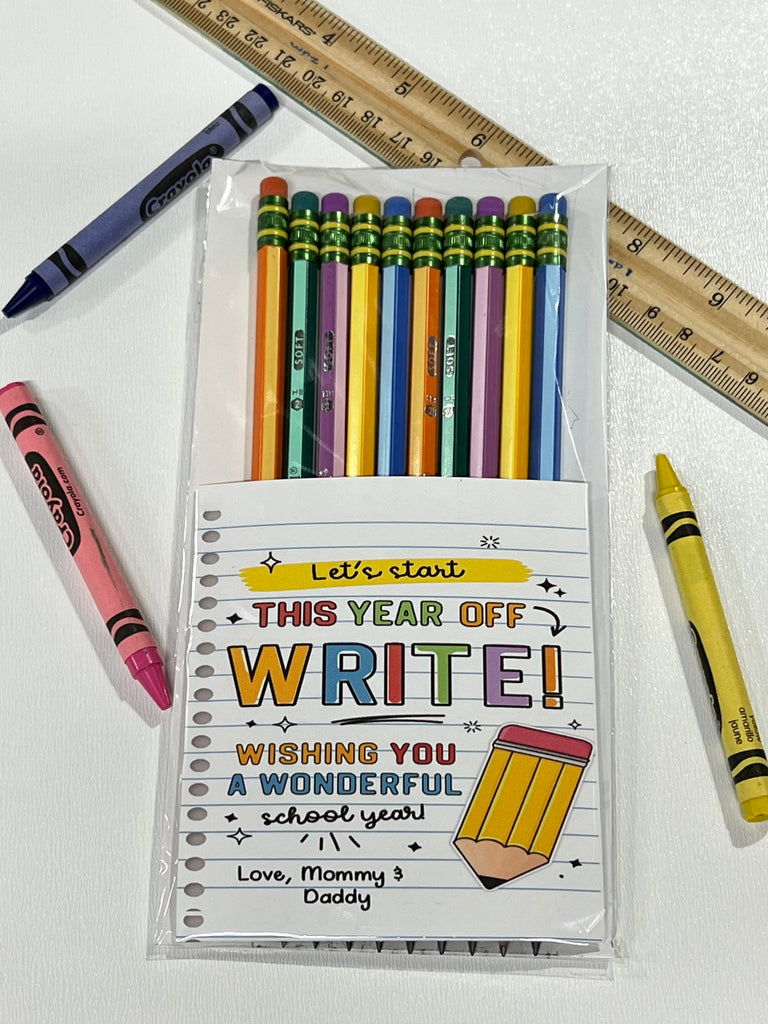 FISKARS
4
5
6
8
9
23
22
21
20
19
18
17
16
10
9
8
7
6
Crayola®
SOFT
HB
2
SOFT
HB
2
Crayola.com
Crayola®
Let's start
THIS YEAR OFF
WRITE!
WISHING YOU
A WONDERFUL
school year!
Love, Mommy &
Daddy
yellow
amarillo
jaune